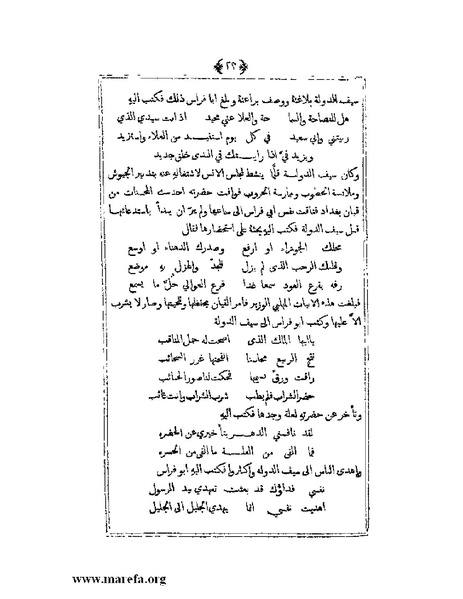 ﴿٢٢﴾
سيف الدولة بلاغته ووصف براعته وبلغ ابا فراس ذلك فكتب اليه
هل للفصاحة والسما حة والعلا عني محيد اذ انت سيدي الذي
ربيتني وابي سعيد في كل يوم استفيد من العلاء واستزيد
ويزيد فيّ اذا رايتك في الندى خلق جديد
وكان سيف الدولة قلما ينشط لمجلس الانس لاشتغاله عنه بتدبير الجيوش
وملابسة الخطوب وممارسة الحروب فوافت حضرته احدى المحسنات من
قيان بغداد فتاقت نفس ابي فراس الى سماعها ولم يرَ ان يبدأ باستدعائها
قبل سيف الدولة فكتب اليه يحثه على استحضارها فقال
محلك الجوزاء او ارفع وصدرك الدهناء او اوسع
وقلبك الرحب الذي لم يزل للجد والهزل به موضع
رفه بقرع العود سمعا غدا قرع العوالي جُلّ ما يسمع
فبلغت هذه الابيات المهلبي الوزير فامر القيان بحفظها وتلحينها وصار لا يشرب
الاّ عليها وكتب ابو فراس الى سيف الدولة
يا ايها الملك الذي اضحت له جمل المناقب
نتج الربيع محاسنا القحنها غرر السحائب
راقت ورقّ نسيمها فحكت لنا صور الحبائب
حضر الشراب فلم يطب شرب الشراب وانت غائب
وتأخر عن حضرته لعلة وجدها فكتب اليه
لقد نافسني الدهـــر بتأخيري عن الحضره
فما القى من العلــة ما القى من الحسره
واهدى الناس الى سيف الدولة واكثروا فكتب اليه ابو فراس
نفسي فداؤك قد بعثت بعهدتي بيد الرسول
اهديت نفسي انما يهدي الجليل الى الجليل
www.marefa.org